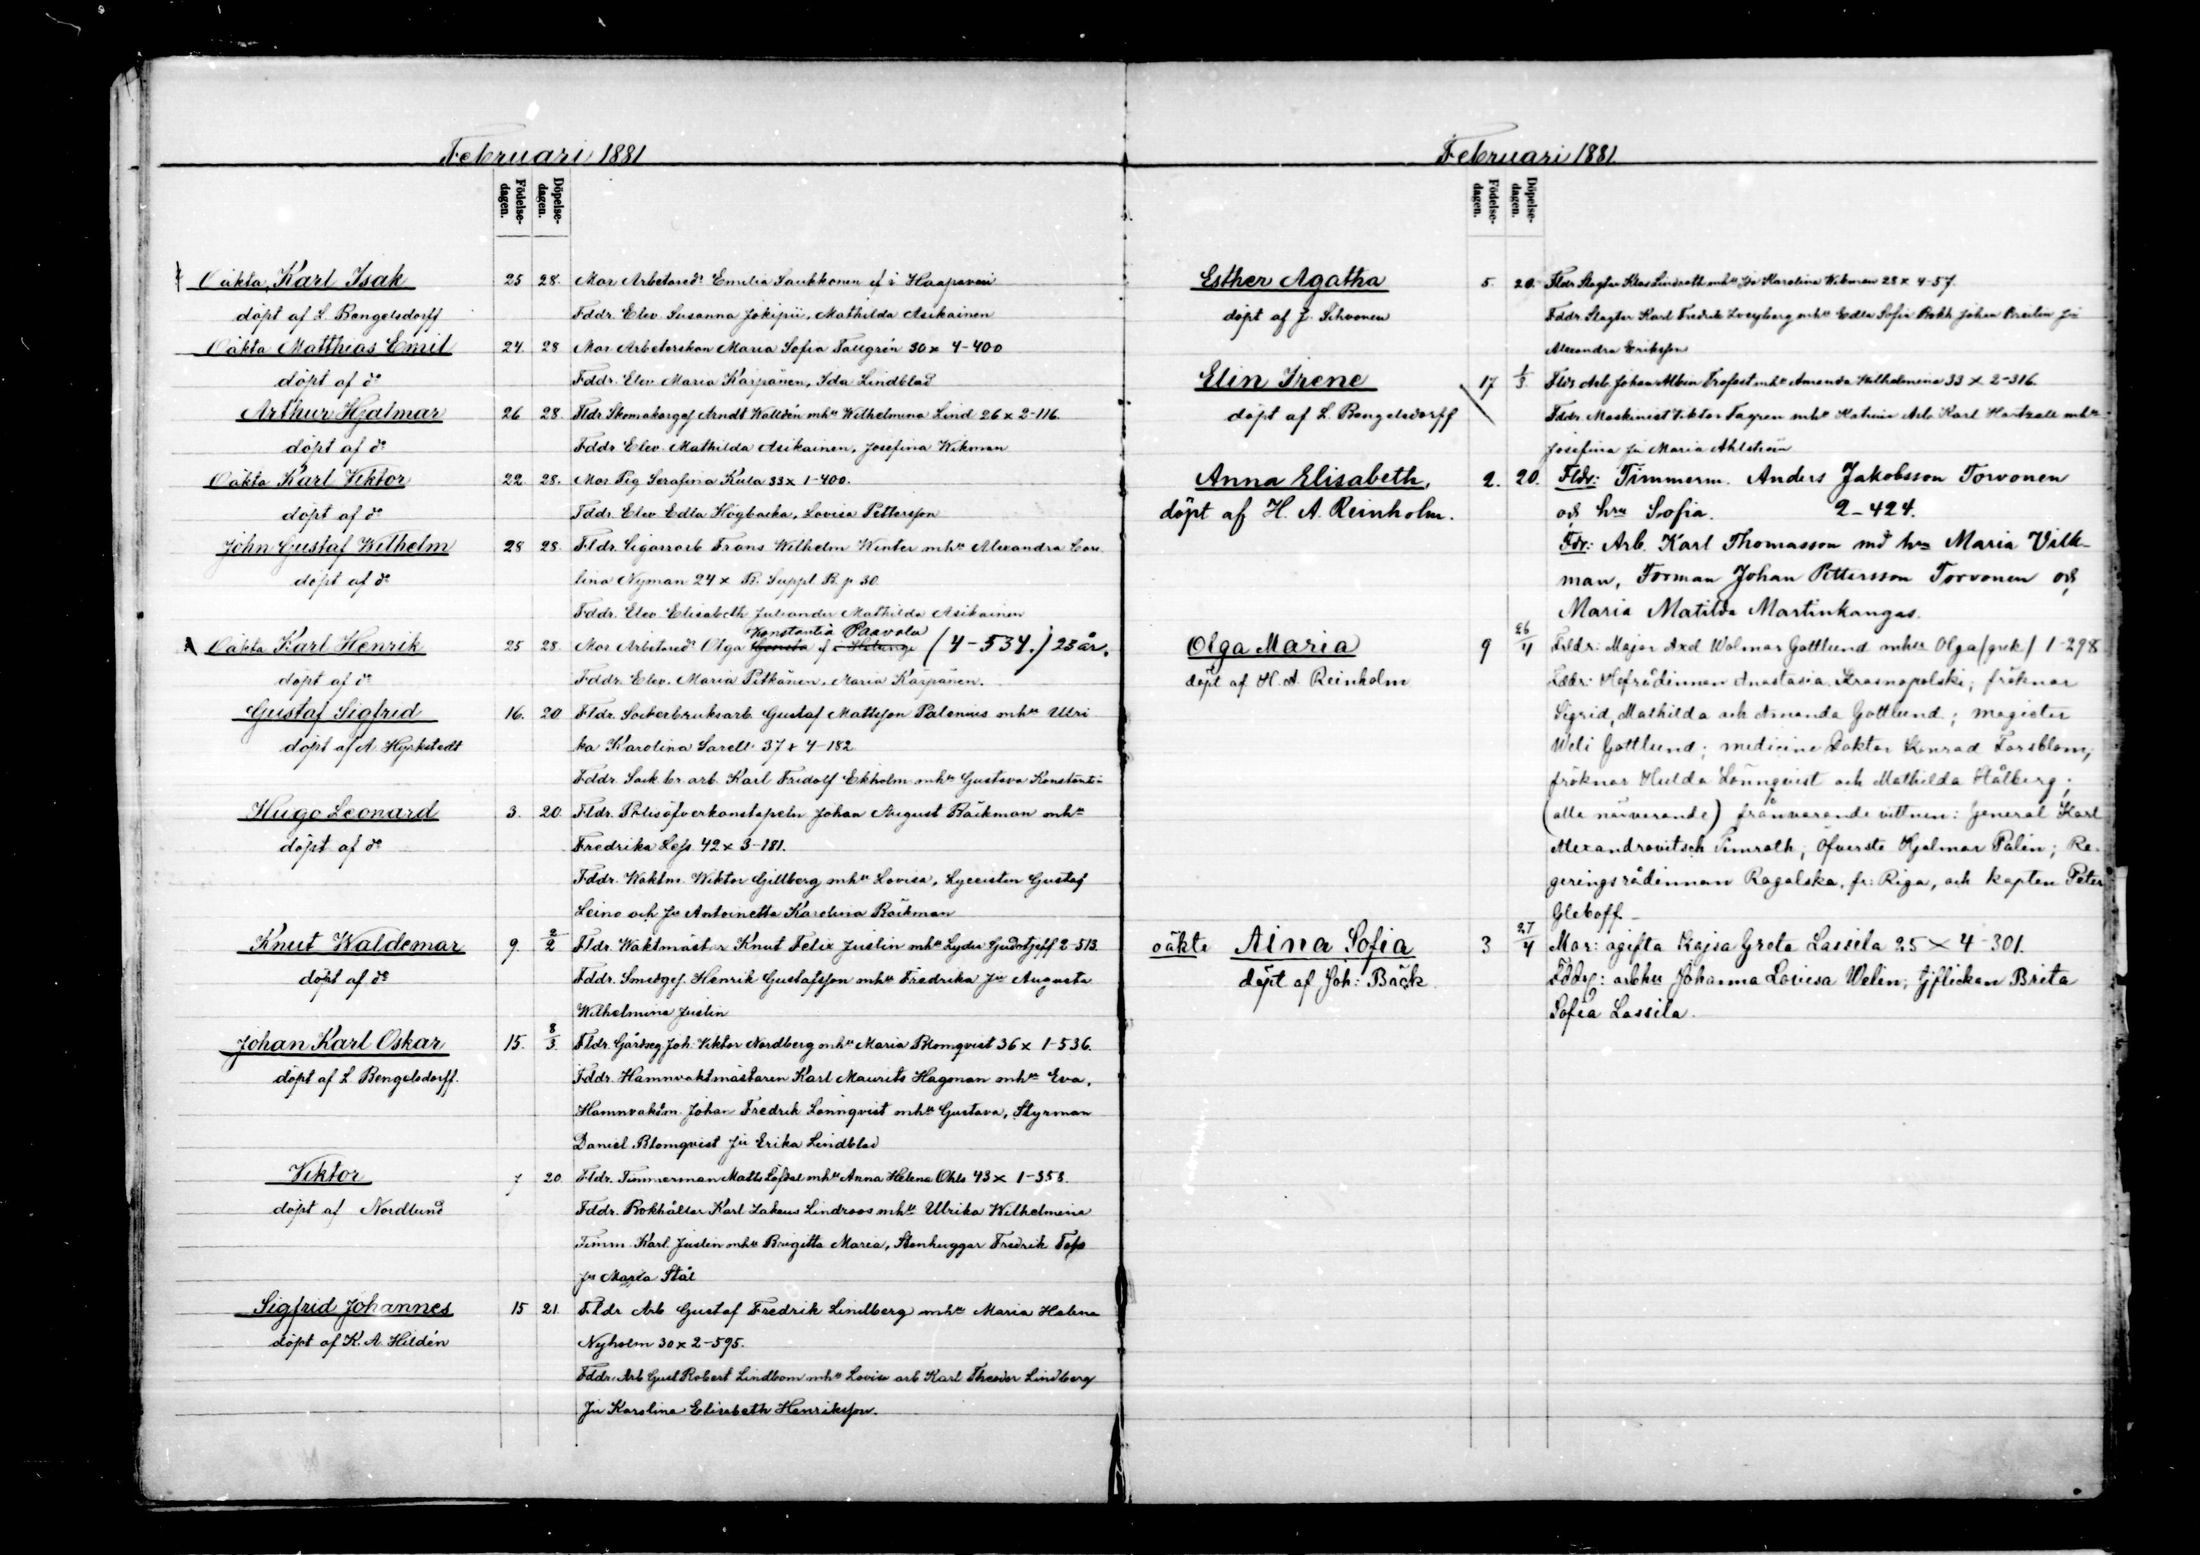 Februari 1881
Födelse-dagen.
Döpelse-dagen.
Oäkta Karl Isak 25 28. Mor Arbetared: Emilia Saukkonen ef i Haapavesi
döpt af L. Bengelsdorff Fddr. Elev. Susanna Jokipii, Mathilda Asikainen
Oäkta Matthias Emil 24. 28 Mor Arbeterskan Maria Sofia Tallgrén 30 x 4-400
döpt af do Fddr. Elev. Maria Karpänen, Ida Lindblad
Arthur Hjalmar 26 28. Fldr Skomakargef Arndt Walldén mhu Wilhelmina Lind 26 x 2-116
döpt af do Fddr Elev. Mathilda Asikainen, Josefina Wikman
Oäkta Karl Viktor 22 28. Mor Pig Serafina Kula 33 x 1-400.
döpt af do Fddr. Elev Edla Högbacka, Lovisa Pettersson
John Gustaf Wilhelm 28 28. Fldr. Cigarrarb Frans Wilhelm Winter mhu Alexandra Caro
döpt af do lina Nyman 24 x B. Suppl. B. p 30.
Fddr. Elev. Elisabeth Julander Mathilda Asikainen
Konstantia Paavola
Oäkta Karl Henrik 25 28. Mor Arbetared: Olga ef i (4-534.) 25 år.
döpt af do Fddr. Elev. Maria Pitkänen, Maria Karpänen.
Gustaf Sigfrid 16. 20 Fldr. Sockerbruksarb. Gustaf Mattsson Palenius mhu Ulri
döpt af A. Hyrkstedt ka Karolina Sarell 37 x 4-182
Fddr. Sock. br. arb. Karl Fridolf Ekholm mhu Gustava Konstantia
Hugo Leonard 3. 20. Fldr. Polisöfverkonstapeln Johan August Bäckman mhu
döpt af do Fredrika Lejs 42 x 3-181.
Fddr. Waktm. Wiktor Gillberg mhu Lovisa, Lyceisten Gustaf
Leino och Ju Antoinetta Karolina Bäckman
Knut Waldemar 9. 2/2 Fldr. Waktmästar Knut Felix Justin mhu Lydia 2-513.
döpt af do Fddr. Smedgef. Henrik Gustafsson mhu Fredrika Ju Augusta
Wilhelmina Justin
Johan Karl Oskar 15. 8/3. Fldr. Gårdseg Joh. Viktor Nordberg mhu Maria Blomqvist 36 x 1-536.
döpt af L. Bengelsdorff. Fddr. Hamnvaktmästaren Karl Maurits Hagman mhu Eva,
Hamnvaktm. Johan Fredrik Lönnqvist mhu Gustava, Styrman
Daniel Blomqvist Ju Erika Lindblad
Viktor 7 20. Fldr. Timmerman Matts Löfdal mhu Anna Helena Ohls 43 x 1-358.
döpt af Nordlund Fddr. Bokhållar Karl Zakeus Lindroos mhu Ulrika Wilhelmina
Timm. Karl Justin mhu Brigitta Maria, Stenhuggar Fredrik
Ju Maria Stål
Sigfrid Johannes 15 21. Fldr Arb Gustaf Fredrik Lindberg mhu Maria Helena
döpt af K. A. Hildén Nyholm 30 x 2-595.
Fddr. Arb Gust Robert Lindbom mhu Lovisa arb Karl Theodor Lindberg
Ju Karolina Elisabeth Henriksson.
Februari 1881
Födelse-dagen.
Döpelse-dagen.
Esther Agatha 5. 20. Fldr Slagtar Klas Lindroth mhu Karolina Wikman 28 x 4-57.
döpt af J. Tihvonen Fddr. Slagtar Karl Fredrik mhu Edla Sofia Bokh Johan Ju
Alexandra Eriksson
Elin Irene 17 1/3. Fldr Arb. Johan Albin mhu Amanda Wilhelmina 33 x 2-316.
döpt af L. Bengelsdorff Fddr. Maskinist Viktor Fagren mhu Katrina Arb. Karl mhu
Josefina Ju Maria Ahlström
Anna Elisabeth, 2. 20. Fldr: Timmerm. Anders Jakobsson Torvonen
döpt af H. A. Reinholm. och hru Sofia. 2-424.
Fdr: Arb. Karl Thomasson md hru Maria Vilk-
man, Forman Johan Pettersson Torvonen och
Maria Matilda Martinkangas.
Olga Maria 9 26/4 Frldr: Major Axel Wolmar Gottlund mhu Olga (grek) 1-298
döpt af H. A. Reinholm Fddr: Hofrådinnan Anastasia Krasnopolski; fröknar
Sigrid, Mathilda och Amanda Gottlund; magister
Weli Gottlund; medicine Doktor Konrad Forsblom;
fröknar Hulda Lönnqvist och Mathilda Hålberg;
(alla närvarande) frånvarande vittnen: General Karl
Alexandrovitsch Timroth; Öfverste Hjalmar Palin; Re-
geringsrådinnan Ragalska, fr: Riga, och kapten Peter
Gleboff.
oäkta Aina Sofia 3 27/4 Mor: ogifta Kajsa Greta Lassila 25 x 4-301.
döpt af Joh: Bäck Fddr: arbhu Johanna Lovisa Welin; tjflickan Brita
Sofia Lassila.